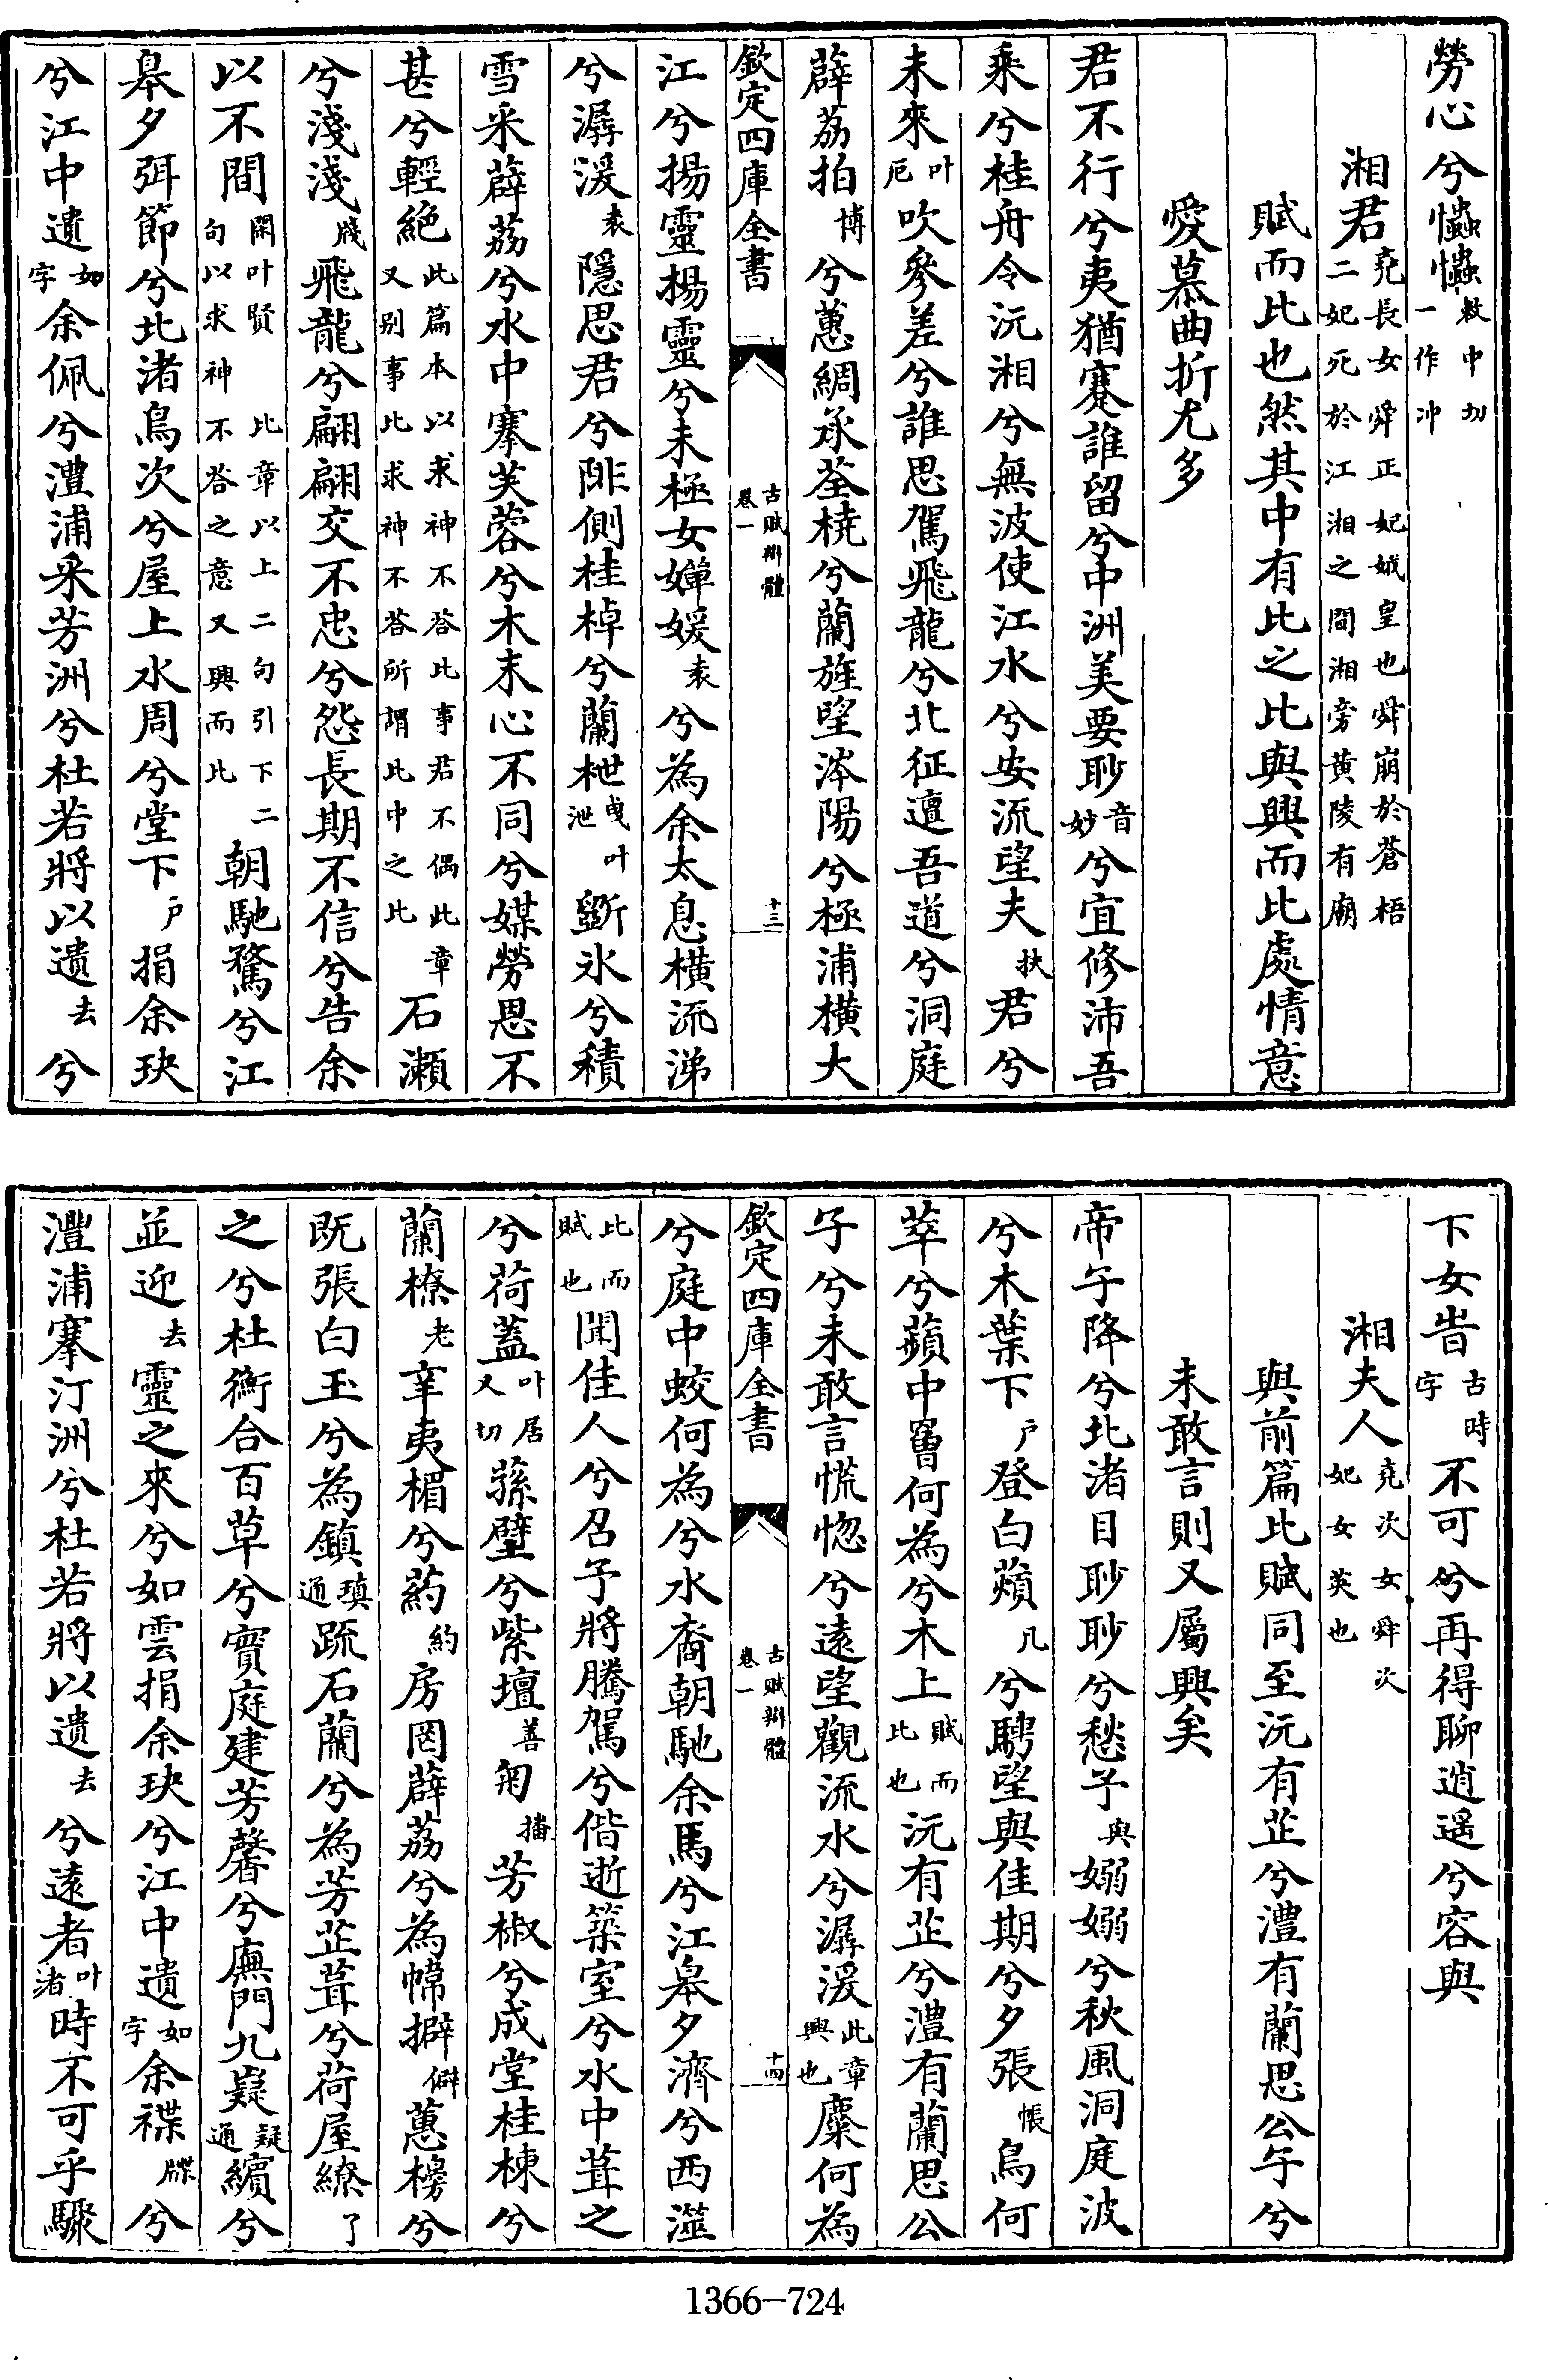 勞心兮𢥞𢥞敕中切一作冲
湘君堯長女舜正妃娥皇也舜崩於蒼梧二妃死於江湘之間湘旁黄陵有廟
賦而比也然其中有比之比與興而比處情意
愛慕曲折尤多
君不行兮夷猶蹇誰留兮中洲美要眇音妙兮宜修沛吾
乘兮桂舟令沅湘兮無波使江水兮安流望夫扶君兮
未來叶厄吹參差兮誰思駕飛龍兮北征邅吾道兮洞庭
薜荔拍博兮蕙綢承荃橈兮蘭旌望涔陽兮極浦橫大
欽定四庫全書 古賦辯體 卷一 十三
江兮揚靈揚靈兮未極女嬋媛袁兮為余太息橫流涕
兮潺湲袁隱思君兮陫側桂棹兮蘭枻曵叶泄斵氷兮積
雪采薜荔兮水中搴芙蓉兮木末心不同兮媒勞恩不
甚兮輕絶此篇本以求神不答此事君不偶此章又别事比求神不答所謂比中之比石瀨
兮淺淺牋飛龍兮翩翩交不忠兮怨長期不信兮告余
以不間閑叶賢 比章以上二句引下二句以求神不答之意又興而比朝馳騖兮江
臯夕弭節兮北渚鳥次兮屋上水周兮堂下户捐余玦
兮江中遺如字余佩兮澧浦采芳洲兮杜若將以遺去兮
下女旹古時字不可兮再得聊逍遥兮容與
湘夫人堯次女舜次妃女英也
與前篇比賦同至沅有芷兮澧有蘭思公子兮
未敢言則又屬興矣
帝子降兮北渚目眇眇兮愁予與嫋嫋兮秋風洞庭波
兮木葉下户登白薠凡兮騁望與佳期兮夕張帳鳥何
萃兮蘋中罾何為兮木上賦而比也沅有芷兮澧有蘭思公
子兮未敢言慌惚兮遠望觀流水兮潺湲此章興也麋何為
欽定四庫全書 古賦辯體 卷一 十四
兮庭中蛟何為兮水裔朝馳余馬兮江臯夕濟兮西澨
比而賦也聞佳人兮召予將騰駕兮偕逝築室兮水中葺之
兮荷蓋叶居又切蓀壁兮紫壇善匊播芳椒兮成堂桂棟兮
蘭橑老辛夷楣兮葯約房罔薜荔兮為幃擗僻蕙櫋兮
既張白玉兮為鎮瑱通疏石蘭兮為芳芷葺兮荷屋繚了
之兮杜衡合百草兮實庭建芳馨兮廡門九嶷疑通繽兮
並迎去靈之來兮如雲捐余玦兮江中遺如字余褋牒兮
澧浦搴汀洲兮杜若將以遺去兮遠者叶渚時不可乎驟
1366-724